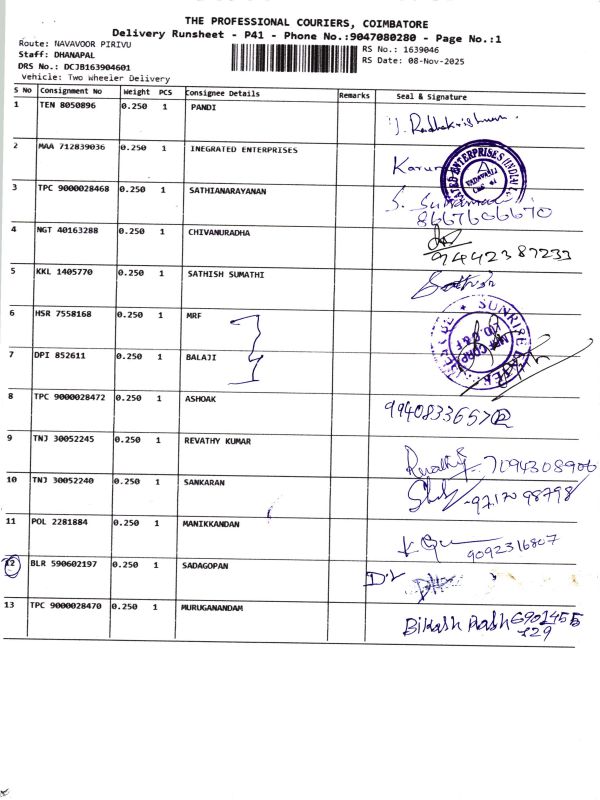 THE PROFESSIONAL COURIERS, COIMBATORE
Delivery Runsheet - P41 - Phone No.:9047080280 - Page No.:1
Route: NAVAVOOR PIRIVU
RS No.: 1639046
Staff: DHANAPAL
RS Date: 08-Nov-2025
DRS No.: DCJB163904601
Vehicle: Two Wheeler Delivery
S No Consignment No Weight PCS Consignee Details Remarks Seal & Signature
1 TEN 8050896 0.250 1 PANDI
2 MAA 712839036 0.250 1 INEGRATED ENTERPRISES
3 TPC 9000028468 0.250 1 SATHIANARAYANAN
8667606670
4 NGT 40163288 0.250 1 CHIVANURADHA
94442387233
5 KKL 1405770 0.250 1 SATHISH SUMATHI Sathish
6 HSR 7558168 0.250 1 MRF
SUNRISE
7 DPI 852611 0.250 1 BALAJI
8 TPC 9000028472 0.250 1 ASHOAK
9 TNJ 30052245 0.250 1 REVATHY KUMAR Revathy 7094308906
10 TNJ 30052240 0.250 1 SANKARAN 9717098798
11 POL 2281884 0.250 1 MANIKKANDAN
9092316807
12 BLR 590602197 0.250 1 SADAGOPAN
13 TPC 9000028470 0.250 1 MURUGANANDAM
Bikash